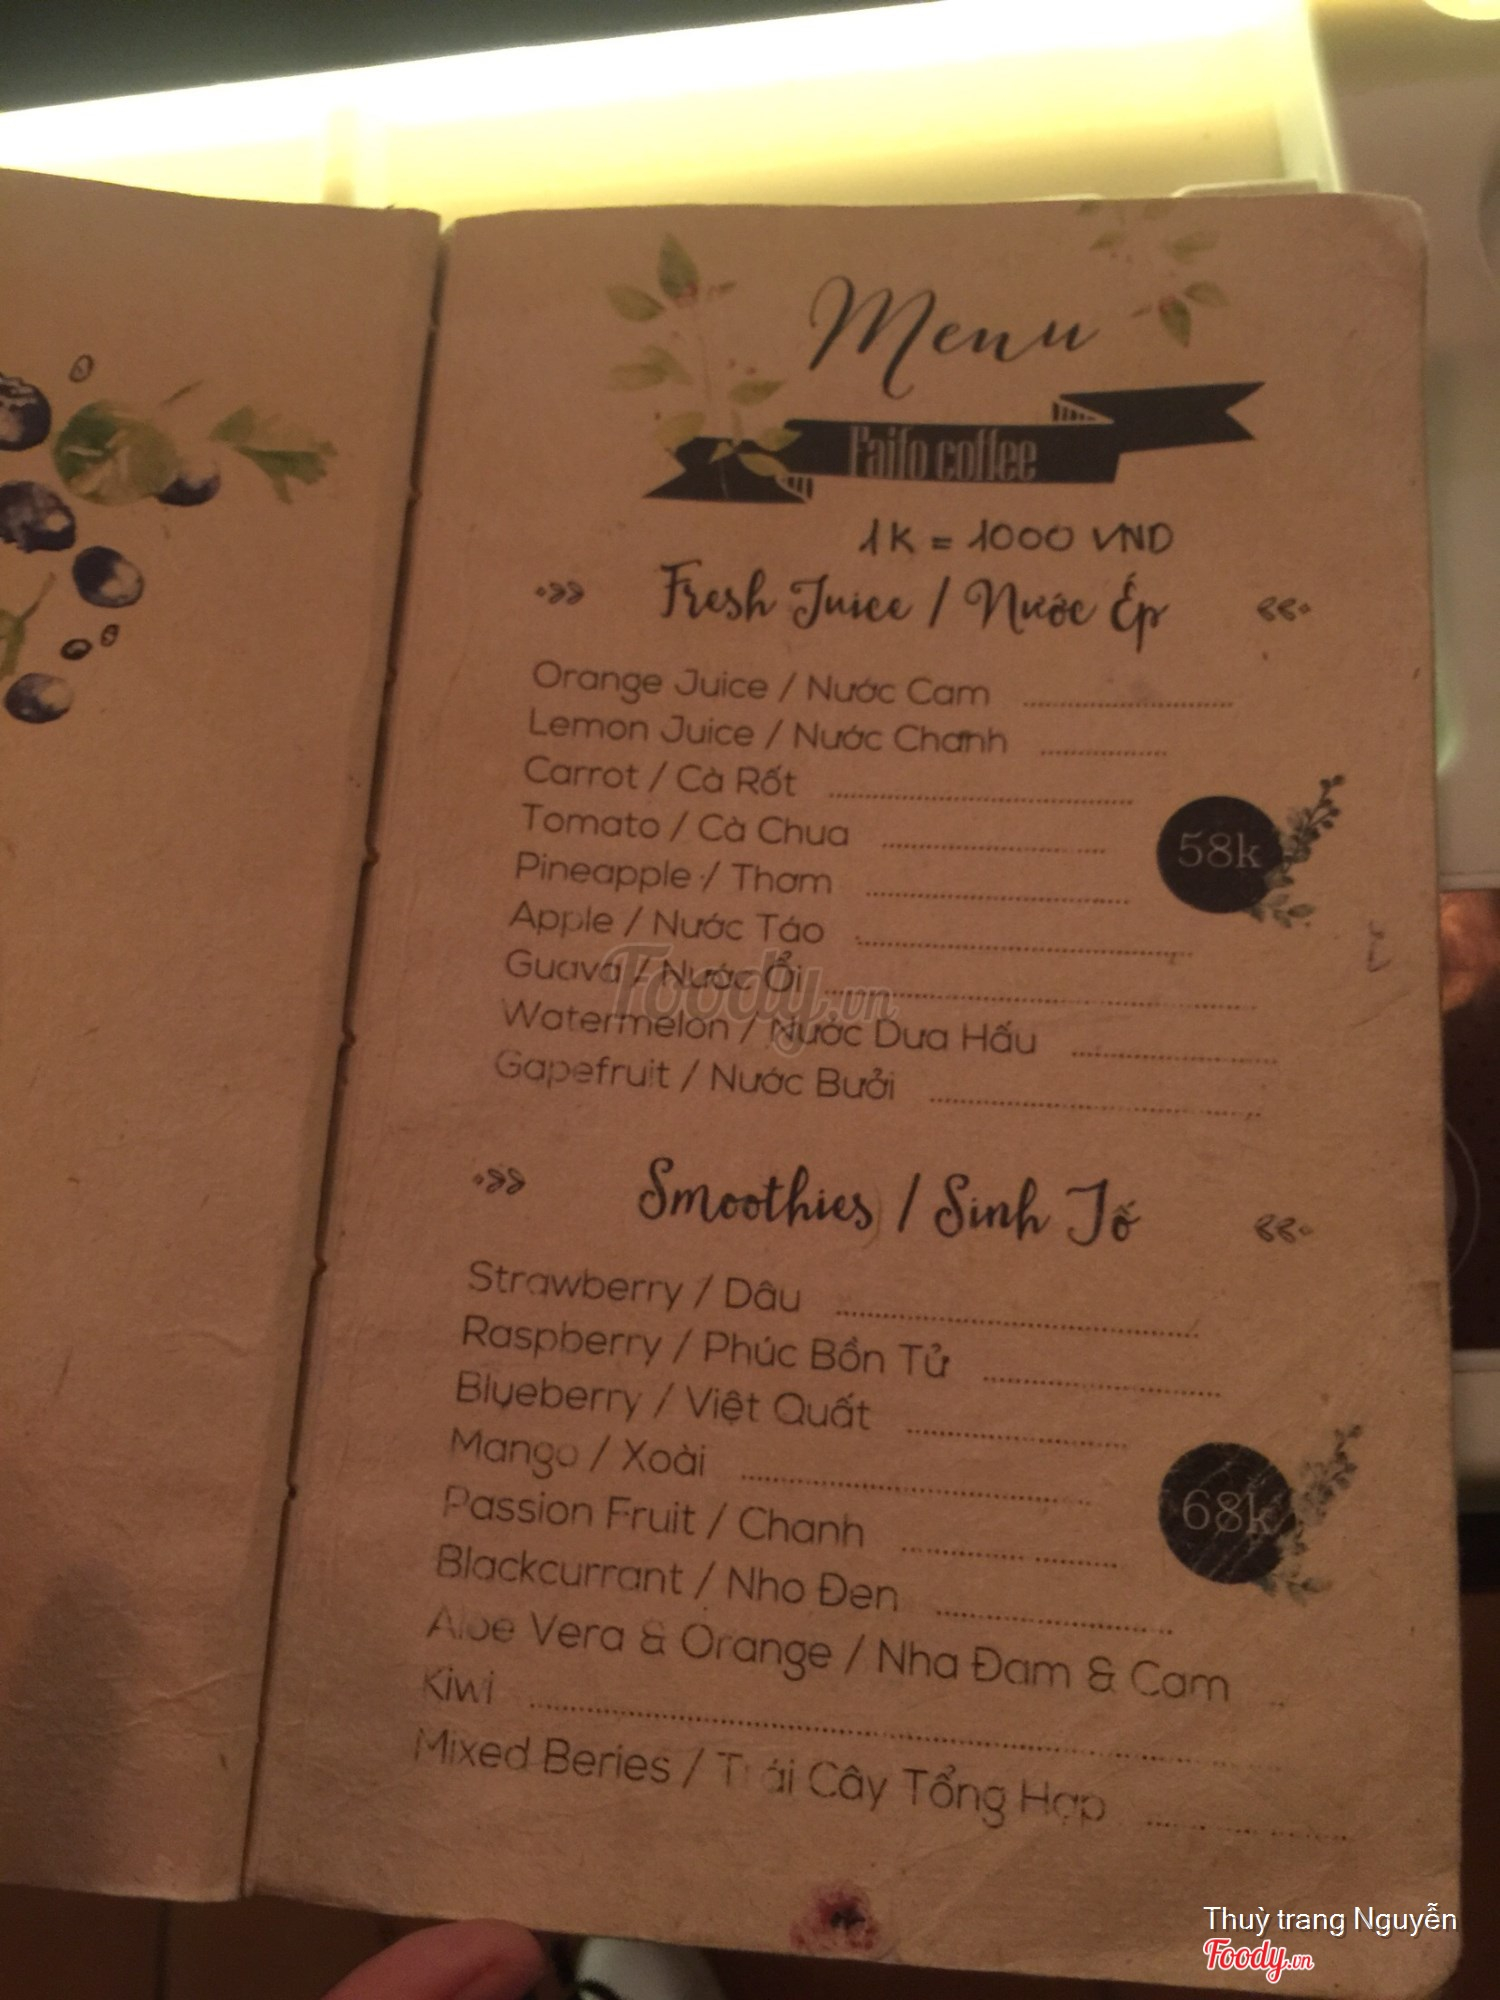 Menu
Faifo coffee
1K = 1000 VND
Fresh Juice / Nước Ép
Orange Juice / Nước Cam
Lemon Juice / Nước Chanh
Carrot / Cà Rốt
Tomato / Cà Chua
58k
Pineapple / Thơm
Apple / Nước Táo
Guava / Nước Ổi
Foody.vn
Watermelon / Nước Dưa Hấu
Gapefruit / Nước Bưởi
Smoothies / Sinh Tố
Strawberry / Dâu
Raspberry / Phúc Bồn Tử
Blueberry / Việt Quất
Mango / Xoài
68k
Passion Fruit / Chanh
Blackcurrant / Nho Đen
Aloe Vera & Orange / Nha Đam & Cam
Kiwi
Mixed Beries / Trái Cây Tổng Hợp
Thuỳ trang Nguyễn
Foody.vn